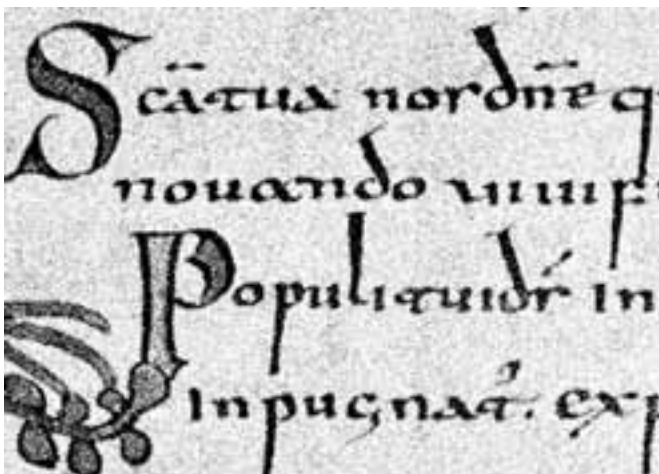 Scā tua nos dn̄e q
nouando uiuif
Populi tui ds in
inpugnat̓. exp